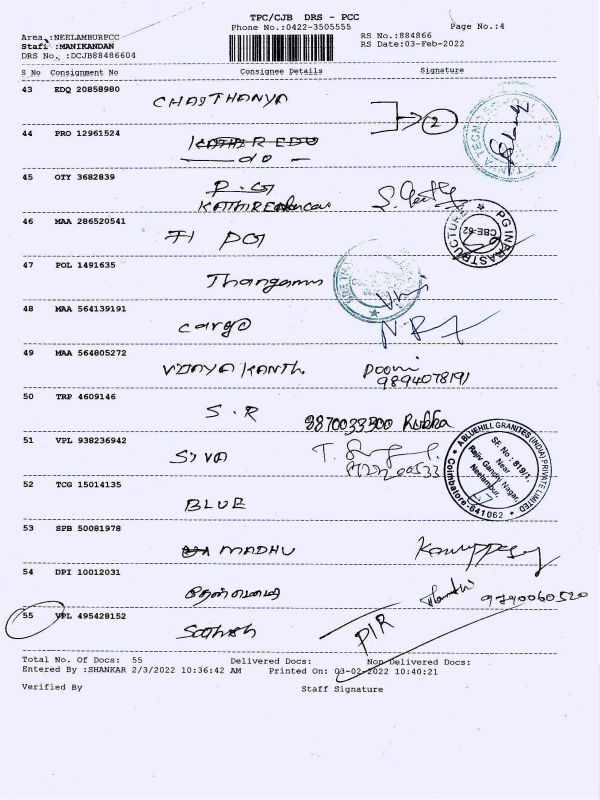 TPC/CJB DRS - PCC
Phone No.:0422-3505555
Page No.:4
Area :NEELAMBURPCC
RS No.:884866
Staff :MANIKANDAN
RS Date:03-Feb-2022
DRS No. :DCJB88486604
S No Consignment No Consignee Details Signature
43 EDQ 20858980
CHAITHANYA
2
44 PRO 12961524
KATHIR EDU
— do —
45 OTY 3682839
P.G
KATHIR
46 MAA 286520541
PG
PG INFRASTRUCTURE
CBE-62
47 POL 1491635
48 MAA 564139191
cargo
49 MAA 564805272
VIJAYAKANTH
9894078191
50 TRP 4609146
S.R 9870033500 Rubha
51 VPL 938236942
SIVA
A BLUEHILL GRANITES (INDIA) PRIVATE LIMITED
SF. No : 819/1,
Near
Rajiv Gandhi Nagar,
Neelambur,
Coimbatore-641062
52 TCG 15014135
BLUE
53 SPB 50081978
MADHU
54 DPI 10012031
9790060520
55 VPL 495428152
Sathish
PIR
Total No. Of Docs: 55 Delivered Docs: Non Delivered Docs:
Entered By :SHANKAR 2/3/2022 10:36:42 AM Printed On: 03-02-2022 10:40:21
Verified By Staff Signature